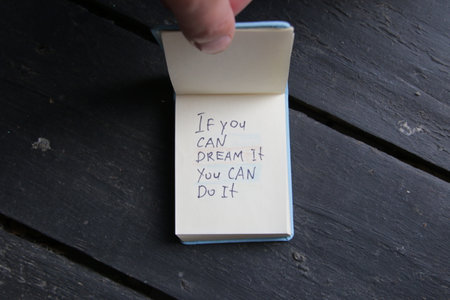 IF you
CAN
DREAM It
you CAN
Do It